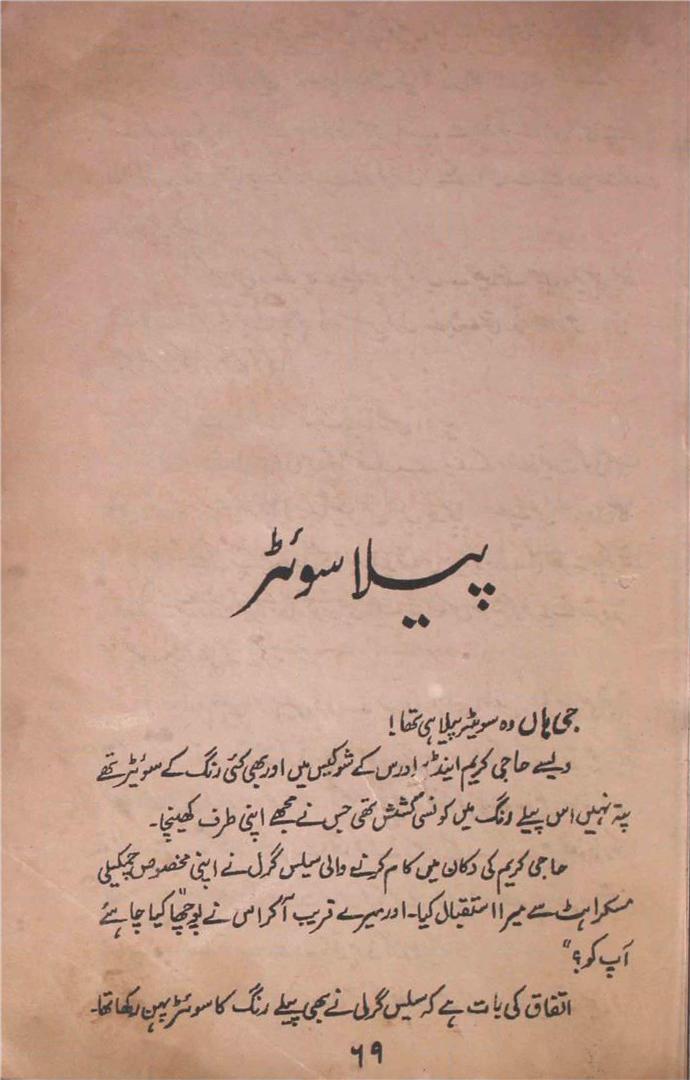 پیلا سوئٹر
جی ہاں وہ سویٹر پیلا ہی تھا!
ویسے حاجی کریم اینڈ برادرس کے شوکیس میں اور بھی کئی رنگ کے سوئٹر تھے
پتہ نہیں اس پیلے رنگ میں کونسی کشش تھی جس نے مجھے اپنی طرف کھینچا۔
حاجی کریم کی دکان میں کام کرنے والی سیلس گرل نے اپنی مخصوص چمکیلی
مسکراہٹ سے میرا استقبال کیا۔ اور میرے قریب آ کر اس نے پوچھا "کیا چاہئے
آپ کو؟"
اتفاق کی بات ہے کہ سلیس گرل نے بھی پیلے رنگ کا سوئٹر پہن رکھا تھا۔
۶۹